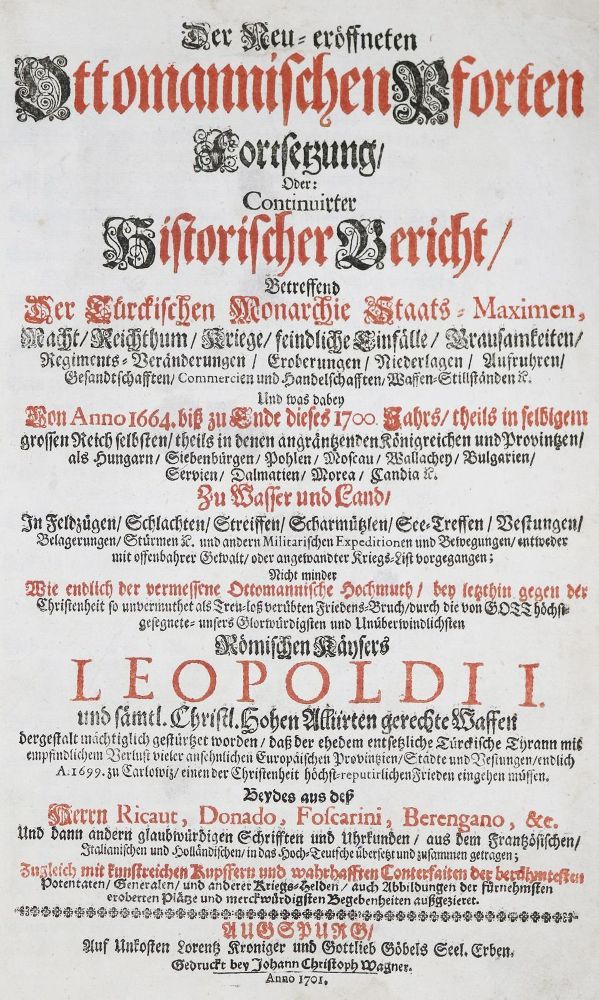 Der Neu-eröffneten
Ottomannischen Pforten
Fortsetzung/
Oder:
Continuirter
Historischer Bericht/
Betreffend
Der Türckischen Monarchie Staats-Maximen,
Macht/ Reichthum/ Kriege/ feindliche Einfälle/ Grausamkeiten/
Regiments-Veränderungen/ Eroberungen/ Niederlagen/ Aufruhren/
Gesandtschafften/ Commercien und Handelschafften/ Waffen-Stillständen ꝛc.
Und was dabey
Von Anno 1664. biß zu Ende dieses 1700. Jahrs/ theils in selbigem
grossen Reich selbsten/ theils in denen angräntzenden Königreichen und Provintzen/
als Hungarn/ Siebenbürgen/ Pohlen/ Moscau/ Wallachey/ Bulgarien/
Servien/ Dalmatien/ Morea/ Candia ꝛc.
Zu Wasser und Land/
In Feldzügen/ Schlachten/ Streiffen/ Scharmützlen/ See-Treffen/ Vestungen/
Belagerungen/ Stürmen ꝛc. und andern Militarischen Expeditionen und Bewegungen/ entweder
mit offenbahrer Gewalt/ oder angewandter Kriegs-List vorgegangen;
Nicht minder
Wie endlich der vermessene Ottomannische Hochmuth/ bey letzthin gegen der
Christenheit so unvermuthet als Treu-loß verübten Friedens-Bruch/ durch die von GOTT höchst-
gesegnete- unsers Glorwürdigsten und Unüberwindlichsten
Römischen Käysers
LEOPOLDI I.
und sämtl. Christl. Hohen Alliirten gerechte Waffen
dergestalt mächtiglich gestürtzet worden/ daß der ehedem entsetzliche Türckische Tyrann mit
empfindlichem Verlust vieler ansehnlichen Europäischen Provintzien/ Städte und Vestungen/ endlich
A. 1699. zu Carlowiz/ einen der Christenheit höchst-reputirlichen Frieden eingehen müssen.
Beydes aus deß
Herrn Ricaut, Donado, Foscarini, Berengano, &c.
Und dann andern glaubwürdigen Schrifften und Uhrkunden/ aus dem Frantzösischen/
Italianischen und Holländischen/ in das Hoch-Teutsche übersetzt und zusammen getragen;
Zugleich mit kunstreichen Kupffern und wahrhafften Conterfaiten der berühmtesten
Potentaten/ Generalen/ und anderer Kriegs-Helden/ auch Abbildungen der fürnehmsten
eroberten Plätze und merckwürdigsten Begebenheiten außgezieret.
AUGSPURG/
Auf Unkosten Lorentz Kroniger und Gottlieb Göbels Seel. Erben.
Gedruckt bey Johann Christoph Wagner.
Anno 1701.